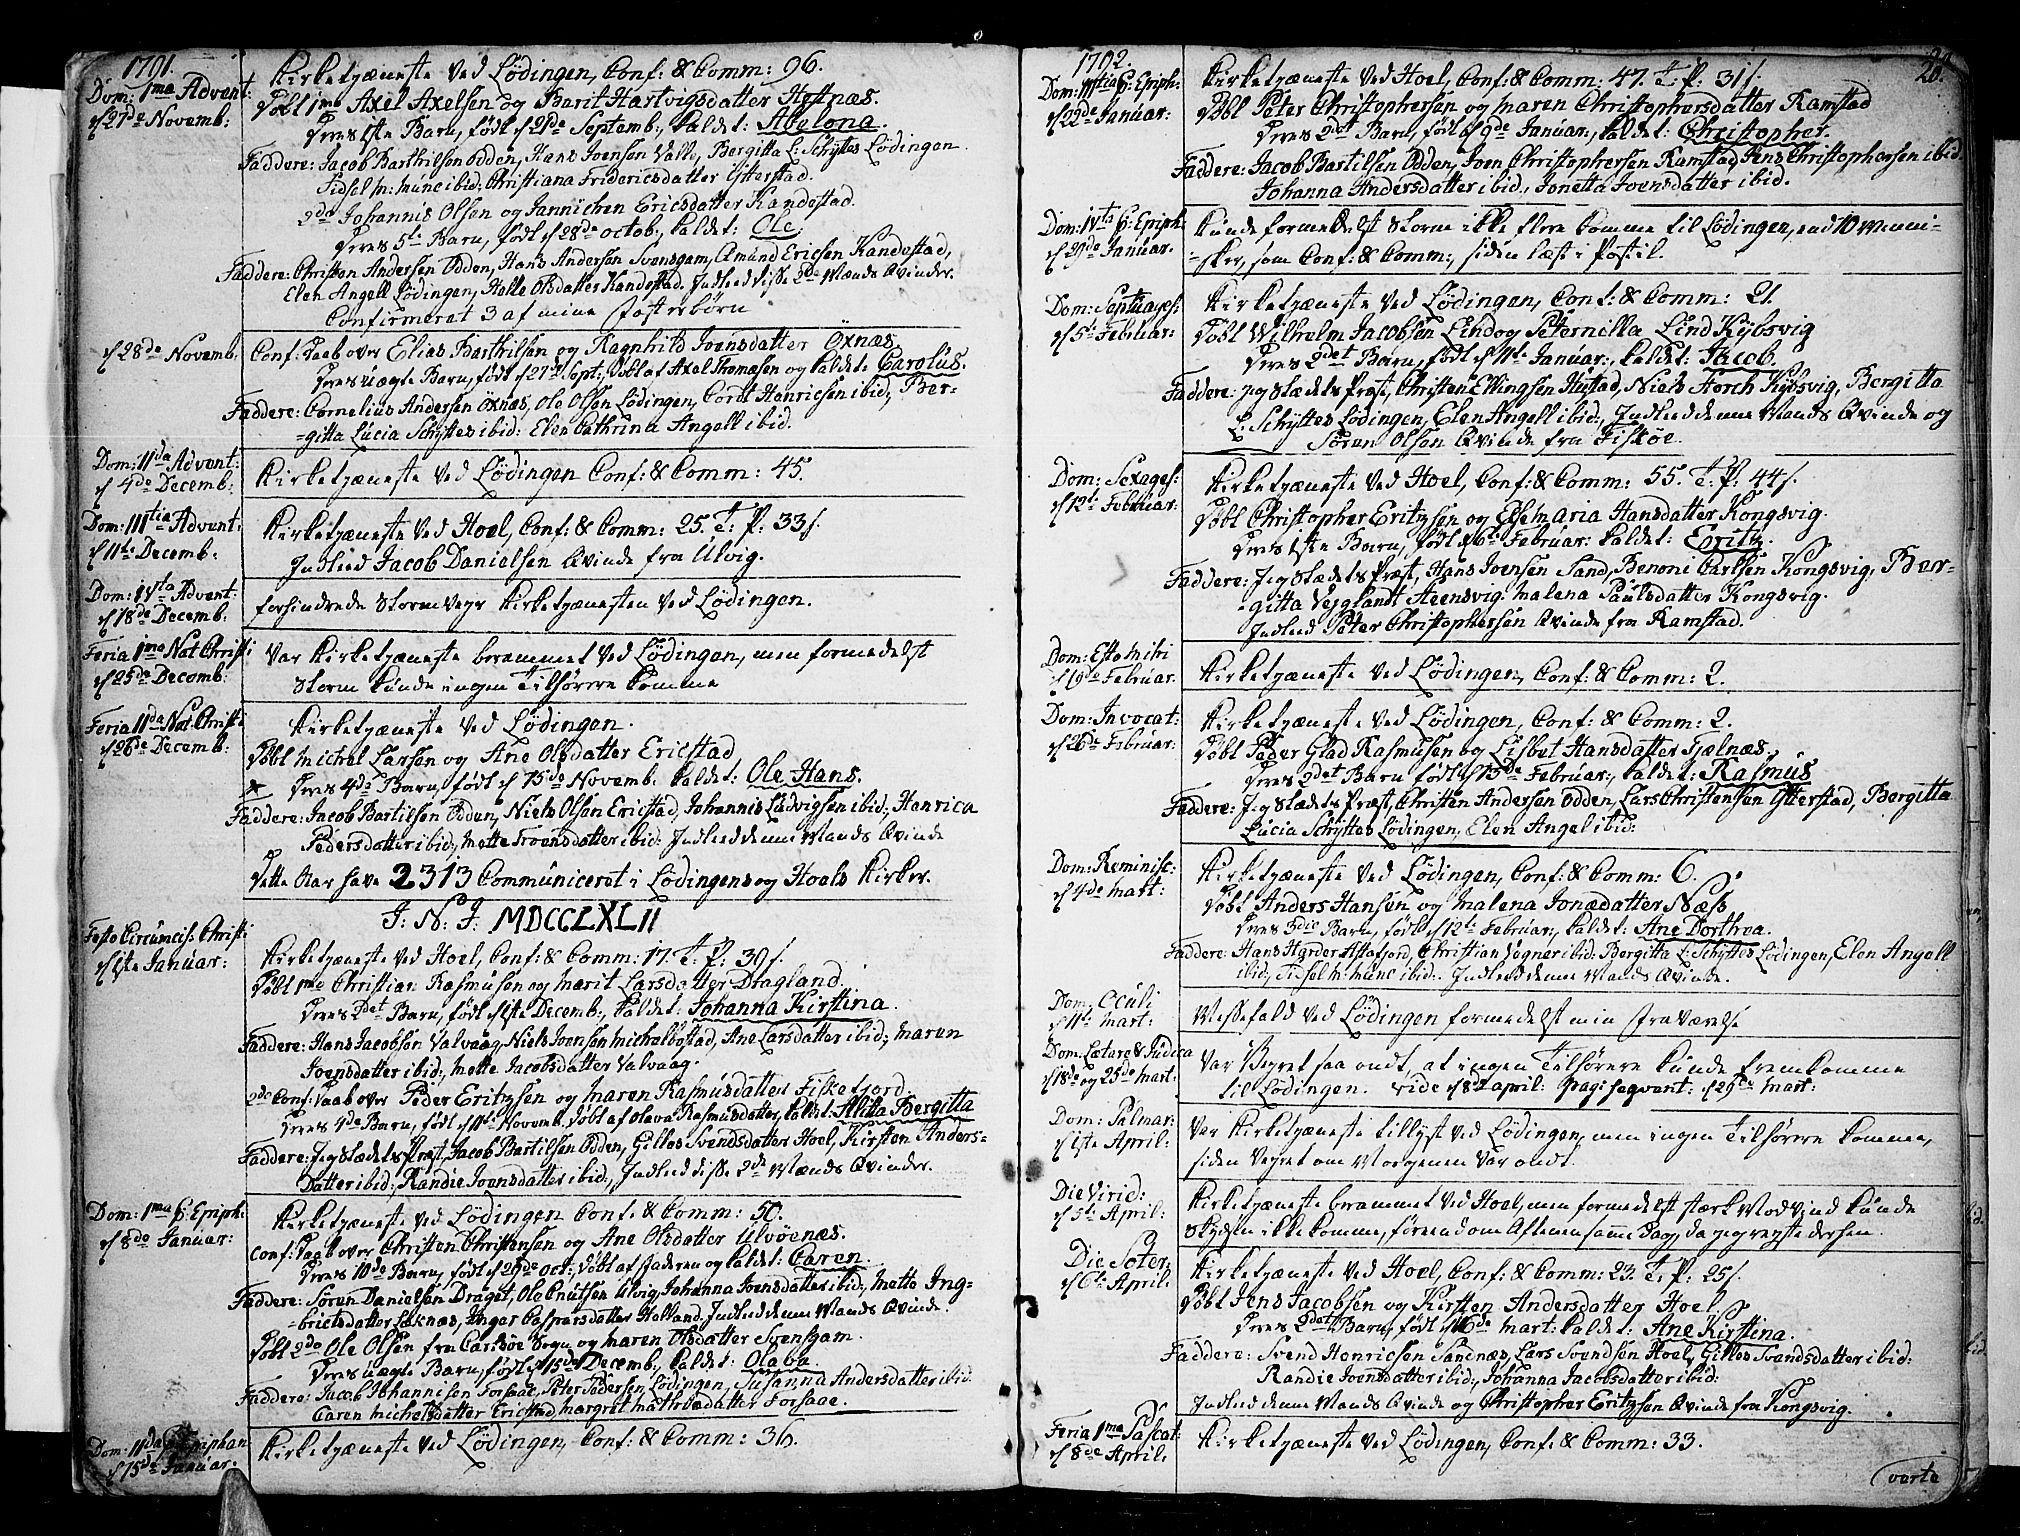 1791.
Dom: 1ma Advent:
d 27de Novemb:
Kirketjæneste ved Lödingen, Conf: & Comm: 96.
Döbt 1mo Axel Axelsen og Barit Hartvigsdatter Hostnæs.
Deres 1ste Barn, födt d 21de Septemb:, kaldet: Abelona.
Faddere: Jacob Barthilsen Odden, Hans Joensen Valle, Bergitta L: Schyttes Lödingen
Sidsel M: Munc ibid: Christiana Fridericsdatter Ytterstad.
2do Johannis Olsen og Jannichen Ericsdatter Kandestad.
Deres 5te Barn, födt d 28de octob:, kaldet: Ole.
Faddere: Christen Andersen Odden, Hans Andersen Svensgam, Amund Ericsen Kandestad,
Elen Angell Lödingen, Helle Olsdatter Kandestad. Indleed disse 2de Mænds Qvinder.
Confirmeret 3 af mine Fosterbörn
d 28de Novemb:
Conf: Daab over Elias Barthilsen og Ragnhild Joensdatter Öxnæs
Deres uægte Barn, födt d 27de Sept:, döbt af Axel Thomæsen og kaldet: Carolus.
Faddere: Cornelius Andersen Öxnæs, Ole Olsen Lödingen, Cordt Henricsen ibid:, Ber-
=gitta Lucia Schyttes ibid: Elen Cathrina Angell ibid.
Dom: 11da Advent:
d 4de Decemb:
Kirketjæneste ved Lödingen Conf: & Comm: 45.
Dom: 111tia Advent:
d 11te Decemb:
Kirketjæneste ved Hoel, Conf: & Comm: 25. T: P: 33 s.
Indleed Jacob Danielsen Qvinde fra Ulvig.
Dom: 1Vta Advent:
d 18de Decemb:
forhindrede Stormveyr Kirketjænesten ved Lödingen.
Feria 1ma Nat: Christi
d 25de Decemb:
Var Kirketjæneste berammet ved Lödingen, men formedelst
Storm kunde ingen Tilhörere komme
Feria 11da Nat: Christi
d 26de Decemb:
Kirketjæneste ved Lödingen.
Döbt Michel Larsen og Ane Olsdatter Ericstad
Deres 4de Barn, födt d 15de Novemb: kaldet: Ole Hans.
Faddere: Jacob Bartilsen Odden, Niels Olsen Ericstad, Johannis Ludvigsen ibid:, Henrica
Pedersdatter ibid:, Mette Troensdatter ibid: Indleed denne Mands Qvinde
Dette Aar have 2313 Communiceret i Lödingens og Hoels Kirker.
J: N: J: MDCCLXLII
Festo Circumcis: Christi
d 1ste Januar:
Kirketjæneste ved Hoel, Conf: & Comm: 17. T: P: 30 s.
Döbt 1mo Christian Rasmusen og Marit Larsdatter Dragland.
Deres 2det Barn, födt d 1ste Decemb:, kaldet: Johanna Kirstina.
Faddere: Hans Jacobsen Valvaag, Niels Joensen Michelbostad, Ane Larsdatter ibid:, Maren
Joensdatter ibid:, Mette Jacobsdatter Valvaag.
2do Conf: Daab over Peder Eritzsen og Maren Rasmusdatter Fiskefjord.
Deres 4de Barn, födt d 11te Novemb: döbt af Olava Rasmusdatter, kaldet: Alitta Bergitta
Faddere: Jeg Stædets Præst, Jacob Bartilsen Odden, Gilles Svendsdatter Hoel, Kirsten Anders-
Datter ibid:, Randie Joensdatter ibid:, Indleed disse 2de Mænds Qvinder.
Dom: 1ma p: Epiph:
d 8de Januar:
Kirketjæneste ved Lödingen Conf: & Comm: 50.
Conf: Daab over Christen Christensen og Ane Olsdatter Ulvöenæs.
Deres 10de Barn, födt d 29de oct:, döbt af Faderen og kaldet: Caren.
Faddere: Sören Danielsen Draget, Ole Cnutsen Ulvig, Johanna Joensdatter ibid:, Mette Ing-
=brictsdatter Leknæs, Inger Caspersdatter Hælland. Indleed denne Mands Qvinde.
Döbt 2do Ole Olsen fra Carlsöe Sogn og Maren Olsdatter Svensgam.
Deres uægte Barn, födt d 15de Decemb:, kaldet: Olava.
Faddere: Jacob Johannisen Forsaae, Peter Pedersen Lödingen, Susanna Andersdatter ibid:
Caren Michelsdatter Ericstad, Margret Mathisdatter Forsaae.
Dom: 11da p: Epiphan
d 15de Januar:
Kirketjæneste ved Lödingen, Conf: & Comm: 36.
1792.
26.
Dom: 111tia p: Epiph:
d 22de Januar:
Kirketjæneste ved Hoel, Conf: & Comm: 47. T: P: 31 s.
Döbt Peter Christophersen og Maren Christophersdatter Ramstad
Deres 2det Barn, födt d 9de Januar:, kaldet: Christopher.
Faddere: Jacob Bartilsen Odden, Joen Christophersen Ramstad, Jens Christophersen ibid.
Johanna Andersdatter ibid:, Jonetta Joensdatter ibid.
Dom: 1Vta p: Epiph:
d 29de Januar:
Kunde formedelst Storm ikke flere komme til Lödingen, end 10 Menni-
=sker, som Conf: & Comm:, siden læst i Postil.
Dom: Septuages:
d 5te Februar:
Kirketjæneste ved Lödingen, Conf: & Comm: 21.
Döbt Wilhelm Jacobsen Lind og Peternilla Lind Kjöbsvig
Deres 2det Barn, födt d 11te Januar:, kaldet: Jacob.
Faddere: Jeg Stædets Præst, Christen Ellingsen Hustad, Niels Horch Kjöbsvig, Bergitta
L: Schyttes Lödingen, Elen Angell ibid:, Indleed denne Mands Qvinde og
Sören Olsen Qvinde fra Fiskøe.
Dom: Sexages:
d 12te Februar:
Kirketjæneste ved Hoel, Conf: & Comm: 55. T: P: 44 s.
Döbt Christopher Eritzsen og Else Maria Hansdatter Kongsvig.
Deres 1ste Barn, födt d 6te Februar: kaldet: Eritz.
Faddere: Jeg Stædets Præst, Hans Joensen Sand, Benoni Carlsen Kongsvig, Ber-
=gitta Vejglandt Steensvig. Malena Paulsdatter Kongsvig.
Indleed Peter Christophersen Qvinde fra Ramstad.
Dom: Esto Mihi
d 19de Februar:
Kirketjæneste ved Lödingen, Conf: & Comm: 2.
Dom: Invocat:
d 26de Februar:
Kirketjæneste ved Lödingen, Conf: & Comm: 2.
Döbt Peder Glad Rasmusen og Lisbet Hansdatter Tjælnæs.
Deres 2det Barn födt d 13de Februar:, kaldet: Rasmus
Faddere: Jeg Stædets Præst, Christen Andersen Odden, Lars Christensen Ytterstad, Bergitta
Lucia Schyttes Lödingen, Elen Angel ibid:
Dom: Reminisc:
d 4de Mart:
Kirketjæneste ved Lödingen, Conf: & Comm: 6.
Döbt Anders Hansen og Malena Jonædatter Næss
Deres 3die Barn, födt d 12te Februar:, kaldet: Ane Dorthea.
Faddere: Hans Harder Affafjord, Christian Vogner ibid: Bergitta L: Schyttes Lödingen, Elen Angell
ibid:, Sidsel M: Munc ibid:. Indleed denne Mands Qvinde.
Dom: Oculi
d 11te Mart:
Messefald ved Lödingen formedelst min Fraværelse
Dom: Lætare & Judica
d 18de og 25de Mart:
Var Veyret saa ondt, at ingen Tilhörere kunde fremkomme
til Lödingen. vide d 8de april: pag: seqvent: d 29de Mart:
Dom: Palmar:
d 1ste April:
Var Kirketjæneste tillyst ved Lödingen, men ingen Tilhörere komme,
siden Veyret om Morgenen var ondt.
Die Virid:
d 5te April:
Kirketjæneste berammet ved Hoel, men formedelst stærk Modvind kunde
Skydsen ikke komme, förend om Aftenen samme Dag, da jeg reyste dersen.
Die Soter:
d 6te April:
Kirketjæneste ved Hoel, Conf: & Comm: 23. T: P: 25 s.
Döbt Jens Jacobsen og Kirsten Andersdatter Hoel.
Deres 2det Barn, födt d 16de Mart: kaldet: Ane Kirstina.
Faddere: Svend Henricsen Sandnæs, Lars Svendsen Hoel, Gilles Svendsdatter ibid:
Randie Joensdatter ibid:, Johanna Jacobsdatter ibid:
Indleed denne Mands Qvinde og Christopher Eritzsen Qvinde fra Kongsvig.
Feria 1ma Pascat:
d 8de April:
Kirketjæneste ved Lödingen, Conf: & Comm: 33.
verte